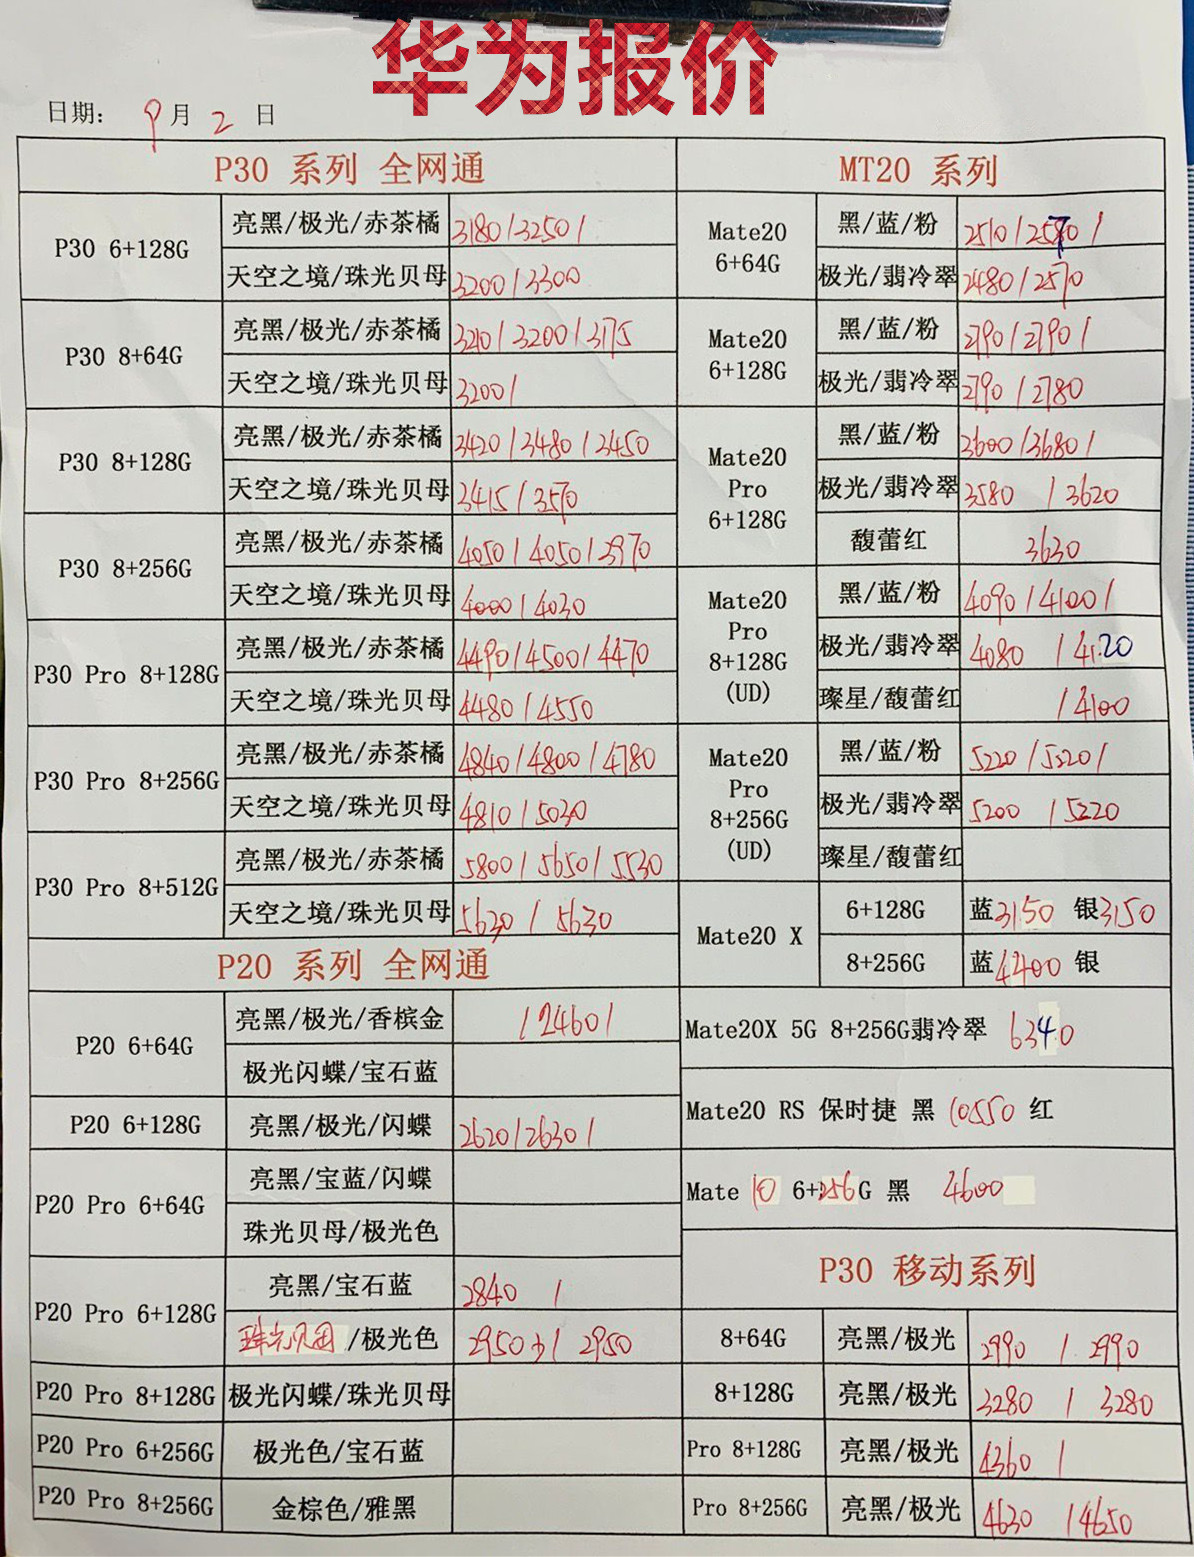 华为报价
日期： 9 月 2 日
P30 系列 全网通
P30 6+128G
亮黑/极光/赤茶橘 3180/3250/
天空之境/珠光贝母 3200/3300
P30 8+64G
亮黑/极光/赤茶橘 3210/3200/3175
天空之境/珠光贝母 3200/
P30 8+128G
亮黑/极光/赤茶橘 3420/3480/3450
天空之境/珠光贝母 3415/3570
P30 8+256G
亮黑/极光/赤茶橘 4050/4050/3970
天空之境/珠光贝母 4000/4030
P30 Pro 8+128G
亮黑/极光/赤茶橘 4490/4500/4470
天空之境/珠光贝母 4480/4550
P30 Pro 8+256G
亮黑/极光/赤茶橘 4840/4800/4780
天空之境/珠光贝母 4810/5030
P30 Pro 8+512G
亮黑/极光/赤茶橘 5800/5650/5530
天空之境/珠光贝母 5630/5630
P20 系列 全网通
P20 6+64G
亮黑/极光/香槟金 /2460/
极光闪蝶/宝石蓝
P20 6+128G 亮黑/极光/闪蝶 2620/2630/
P20 Pro 6+64G
亮黑/宝蓝/闪蝶
珠光贝母/极光色
P20 Pro 6+128G
亮黑/宝石蓝 2840 /
珠光贝母/极光色 2950 / 2950
P20 Pro 8+128G 极光闪蝶/珠光贝母
P20 Pro 6+256G 极光色/宝石蓝
P20 Pro 8+256G 金棕色/雅黑
MT20 系列
Mate20
6+64G
黑/蓝/粉 2510/2570/
极光/翡冷翠 2480/2570
Mate20
6+128G
黑/蓝/粉 2790/2790/
极光/翡冷翠 2790/2780
Mate20
Pro
6+128G
黑/蓝/粉 3600/3680/
极光/翡冷翠 3580 /3620
馥蕾红 3630
Mate20
Pro
8+128G
(UD)
黑/蓝/粉 4090/4100/
极光/翡冷翠 4080 /4120
璨星/馥蕾红 /4100
Mate20
Pro
8+256G
(UD)
黑/蓝/粉 5220/5220/
极光/翡冷翠 5200 /5220
璨星/馥蕾红
Mate20 X
6+128G 蓝3150 银3150
8+256G 蓝4400 银
Mate20X 5G 8+256G翡冷翠 6340
Mate20 RS 保时捷 黑 10550 红
Mate 10 6+256G 黑 4600
P30 移动系列
8+64G 亮黑/极光 2990 / 2990
8+128G 亮黑/极光 3280 / 3280
Pro 8+128G 亮黑/极光 4360 /
Pro 8+256G 亮黑/极光 4630 /4650